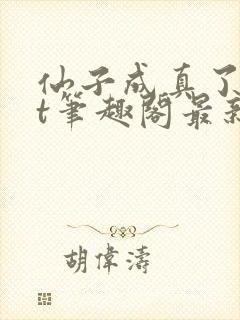 仙子成真了
t筆趣閣最新
胡偉濤